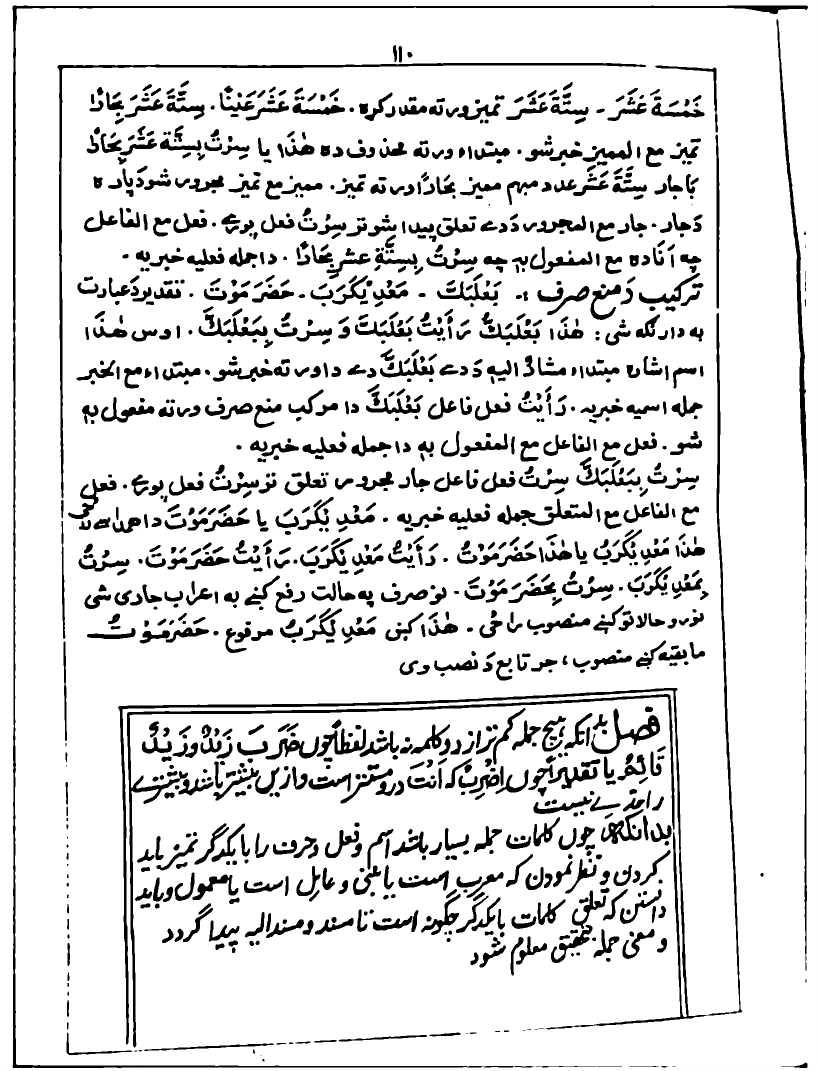 ۱۱۰
خَمْسَةَ عَشَرَ - سِتَّةَ عَشَرَ تمیز ورته مقدر کړه . خَمْسَةَ عَشَرَ عَيْنًا . سِتَّةَ عَشَرَ بِحَادًا
تمیز مع الممیز خبر شو . مبتداء ورته محذوف ده هٰذَا یا سِرْتُ بِسِتَّةَ عَشَرَ بِحَادًا
بَا جار سِتَّةَ عَشَرَ عدد مبهم ممیز بِحَادًا ورته تمیز . ممیز مع تمیز مجرور شو دَپاره
دَجار . جار مع المجرور دَدے تعلق پیدا شو تر سِرْتُ فعل پورے . فعل مع الفاعل
چه اَنَا ده مع المفعول بهٖ چه سِرْتُ بِسِتَّةِ عشر بِحَادًا . دا جمله فعلیه خبریه .
ترکیب دَ منع صرف :- بَعْلَبَكَّ - مَعْدِيْكَرَبَ - حَضَرَمَوْتَ . تقدیر دَ عبارت
به دارنګه شی : هٰذَا بَعْلَبَكُّ رَأَيْتُ بَعْلَبَكَّ وَ سِرْتُ بِبَعْلَبَكَّ . اوس هٰذَا
اسم اشاره مبتداء مشارٌ الیه دَدے بَعْلَبَكَّ دے دا ورته خبر شو . مبتداء مع الخبر
جمله اسمیه خبریه . رَأَيْتُ فعل فاعل بَعْلَبَكَّ دا مرکب منع صرف ورته مفعول بهٖ
شو . فعل مع الفاعل مع المفعول بهٖ دا جمله فعلیه خبریه .
سِرْتُ بِبَعْلَبَكَّ سِرْتُ فعل فاعل جار مجرور تعلق تر سِرْتُ فعل پورے . فعل
مع الفاعل مع المتعلق جمله فعلیه خبریه . مَعْدِيْكَرَبَ یا حَضَرَمَوْتَ دا
هٰذَا مَعْدِيْكَرَبُ یا هٰذَا حَضَرَمَوْتُ . رَأَيْتُ مَعْدِيْكَرَبَ . رَأَيْتُ حَضَرَمَوْتَ . سِرْتُ
بِمَعْدِيْكَرَبَ . سِرْتُ بِحَضَرَمَوْتَ . نو صرف په حالت رفع کښے به اعراب جاری شی
نورو حالاتو کښے منصوب راځی . هٰذَا کښی مَعْدِيْكَرَبُ مرفوع . حَضَرَمَوْتُ
مابقیه کښے منصوب ، جر تابع دَ نصب وی
فصل بدانکه هیچ جمله کم تر از دو کلمه نه باشد لفظاً چون ضَرَبَ زَيْدٌ وَ زَيْدٌ
قَائِمٌ یا تقدیراً چون اِضْرِبْ که اَنْتَ درو مستتر است و ازیں بیشتر باشد و بیشترے
را حدے نیست
بدانکه چوں کلمات جمله بسیار باشد اسم و فعل و حرف را با یکدگر تمیز باید
کردن و نظر نمودن که معرب است یا مبنی و عامل است یا معمول و باید
دانستن که تعلق کلمات با یکدگر چگونه است تا مسند و مسند الیه پیدا گردد
و معنی جمله بتحقیق معلوم شود